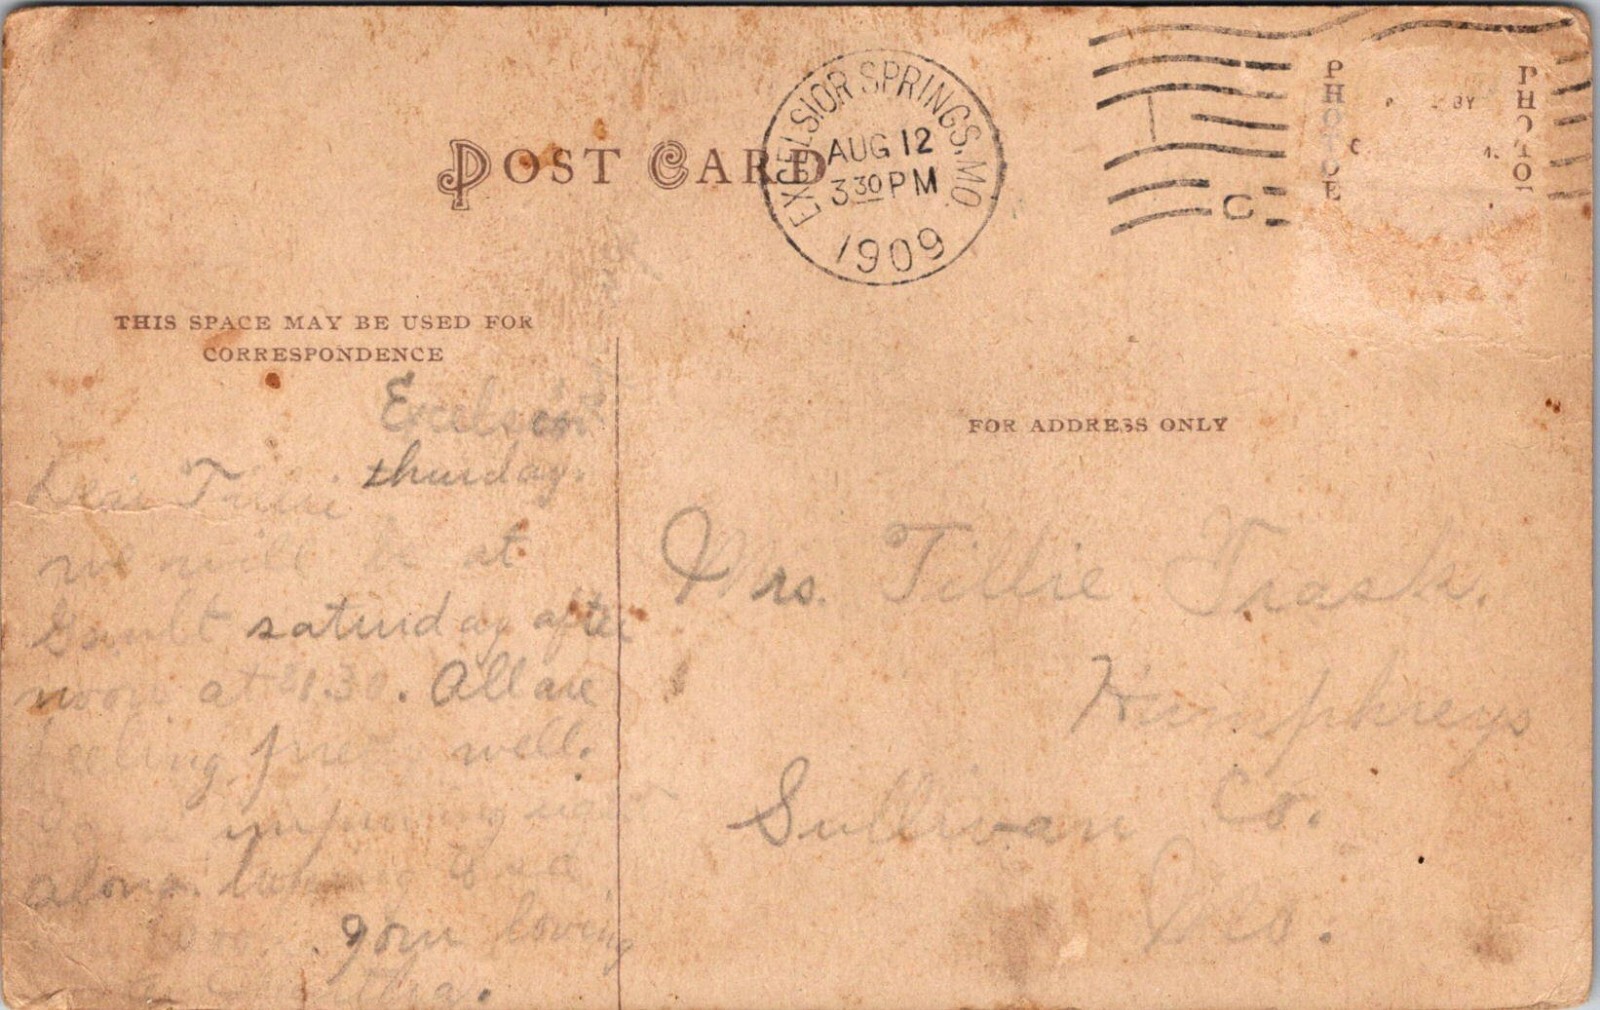 POST CARD
EXCELSIOR SPRINGS, MO.
AUG 12
3 30 PM
1909
C
PHOTO
BY
PHOTO
THIS SPACE MAY BE USED FOR
CORRESPONDENCE
FOR ADDRESS ONLY
Excelsior
thursday.
Dear
we will be at
Gault saturday after
noon at 30. All are
feeling pretty well.
improving
along.
your loving
Mrs. Tillie Trask.
Humphreys
Sullivan Co.
Mo.